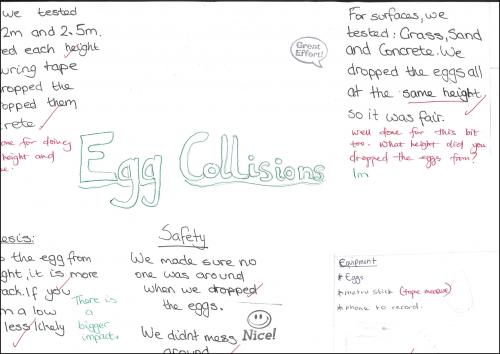 we tested
2m and 2.5m.
ed each height
uring tape
ropped the
opped them
rete
one for doing
height and
Great
Effort!
For surfaces, we
tested: Grass, Sand
and Concrete. We
dropped the eggs all
at the same height
so it was fair.
Well done for this bit
too. What height did you
dropped the eggs from?
1m
Egg Collisions
esis:
the egg from
ght, it is more
rack. If you
m a low
less likely
There is
a
bigger
impact.
Safety
We made sure no
one was around
when we dropped
the eggs.
Nice!
We didnt mess
around
Equipment
* Eggs
* metre stick (tape measure)
* phone to record.